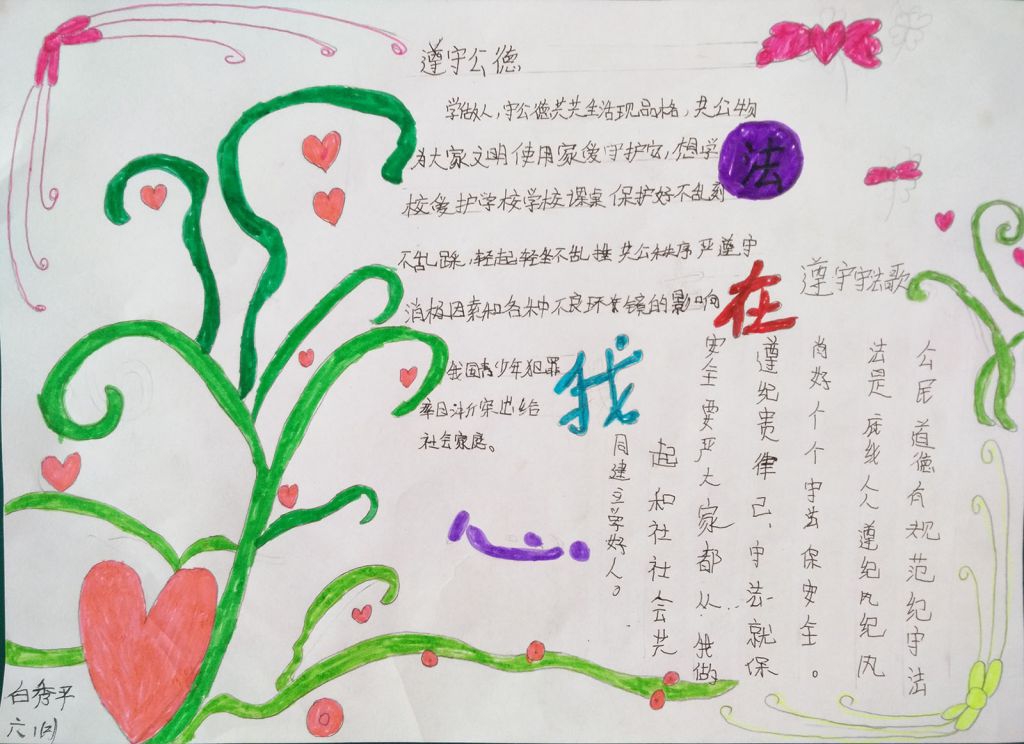 遵守公德
学做人,守公德共共生活现品格,共公物
为大家文明使用家爱守护安,想学
校爱护学校学校课桌保护好不乱刻
不乱踩,轻起轻坐不乱撞共公秩序严遵守
消极因素和各种不良环境的影响
我国青少年犯罪
率日
社会家庭。
法
在
我
心
遵守守法歌
公民道德有规范纪守法
法是底线人人遵纪
尚好个个守法保安全。
遵纪贵律己,守法就保
安全要严大家都从我做
起和社社会共
同建立学好人。
白秀平
六